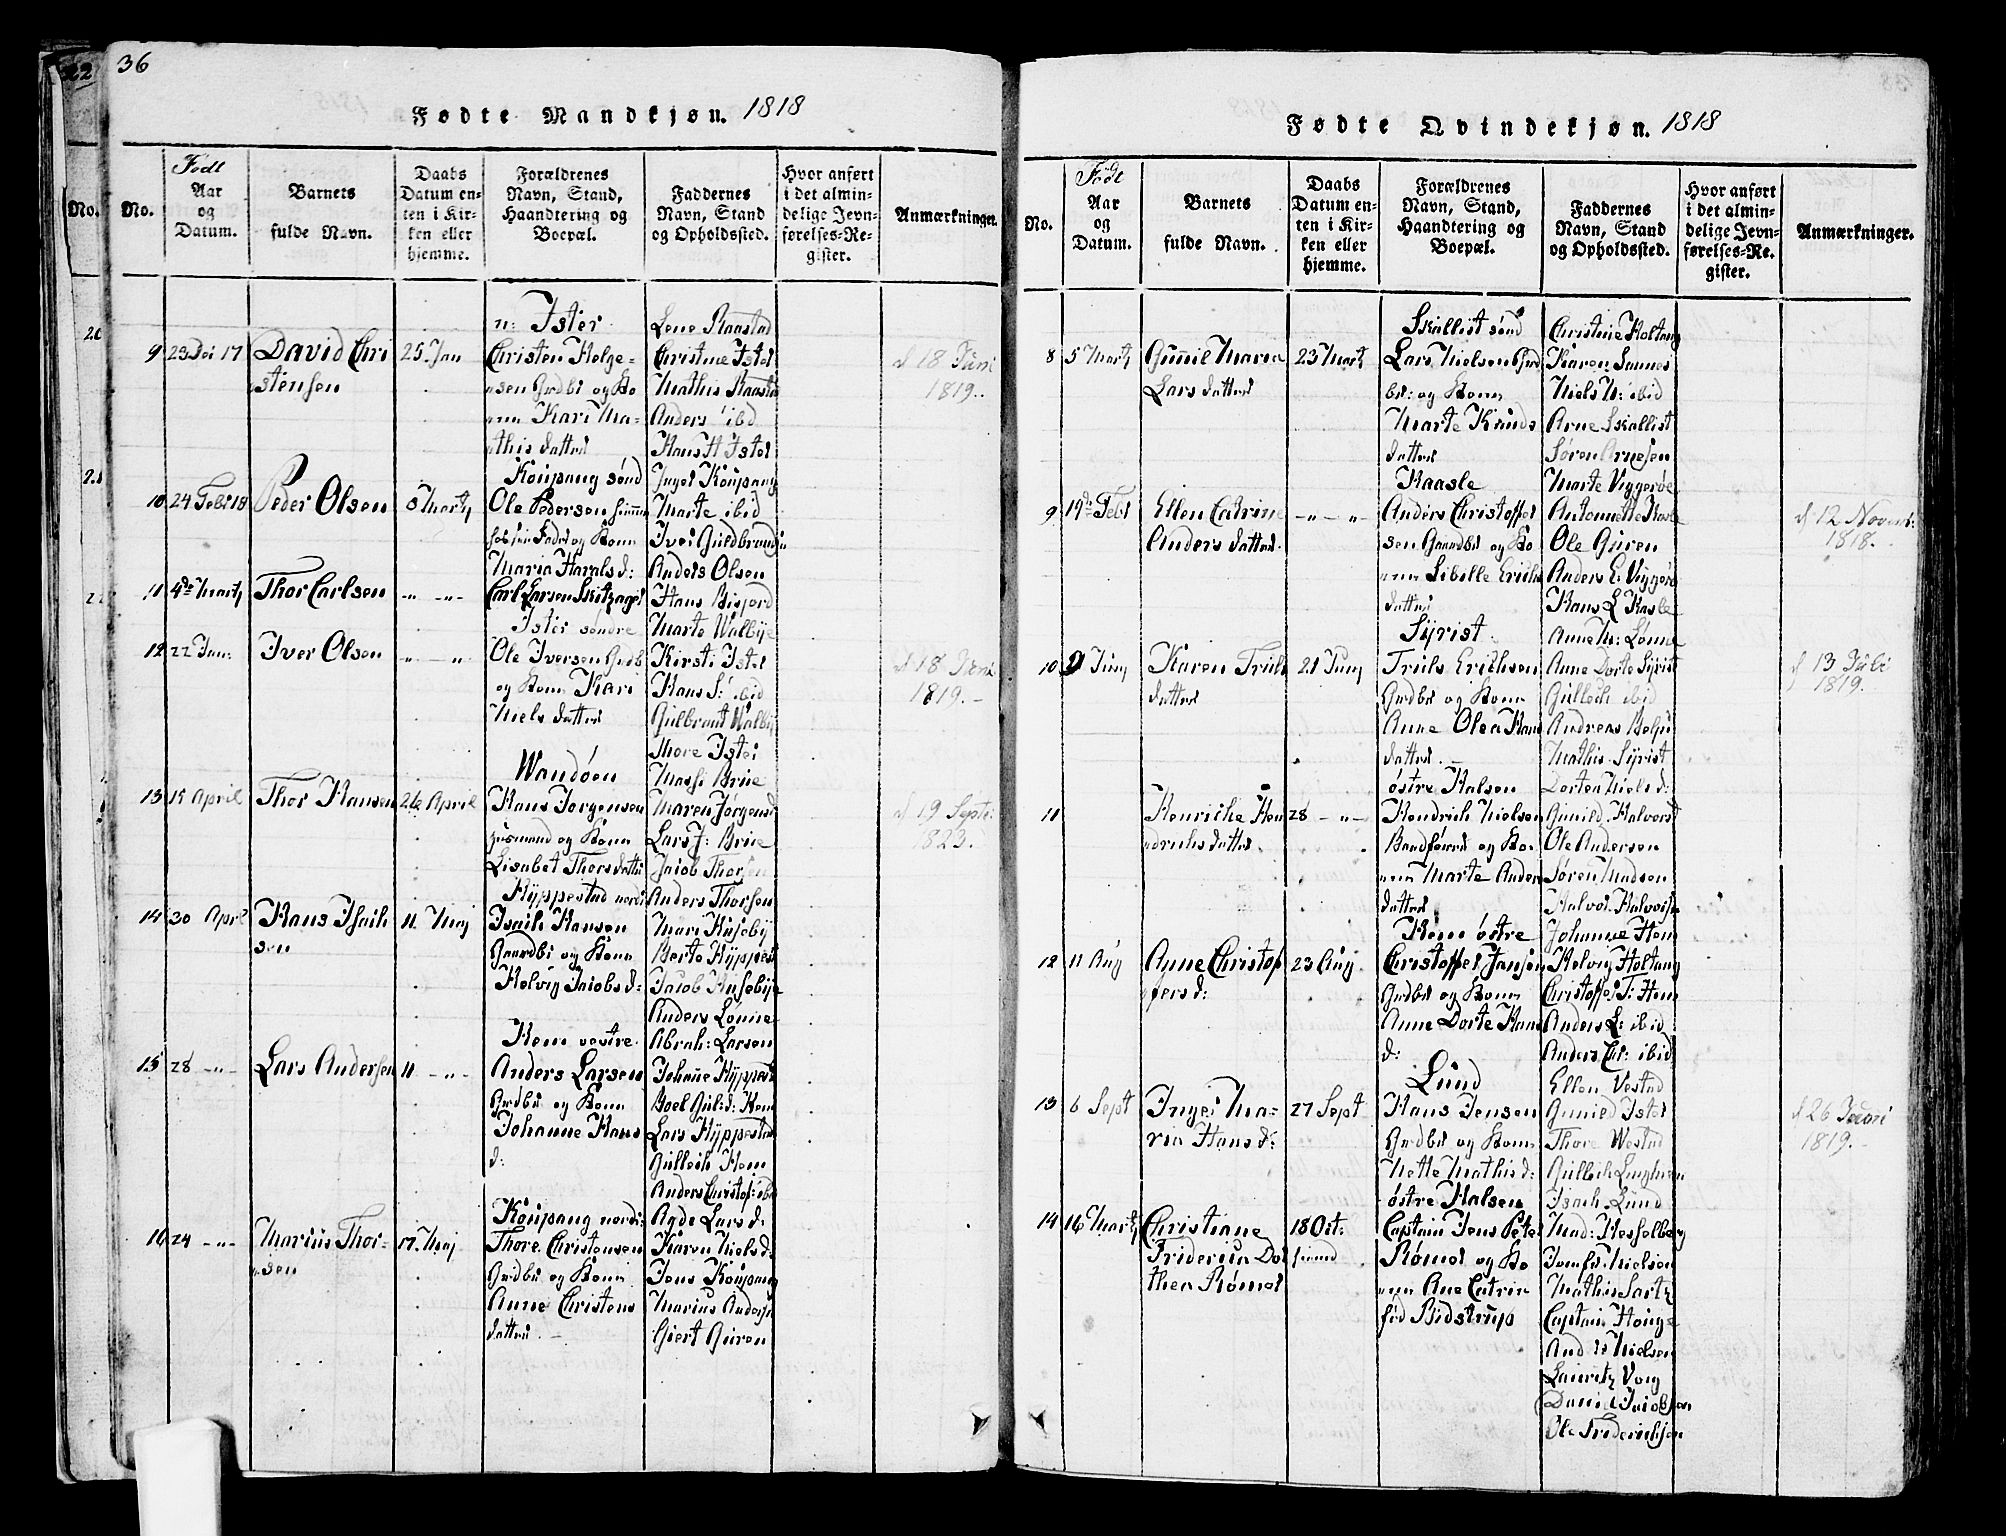 36
Fødte Mandkjøn. 1818
No.
Født
Aar
og
Datum.
Barnets
fulde Navn.
Daabs
Datum en-
ten i Kir-
ken eller
hjemme.
Forældrenes
Navn, Stand,
Haandtering og
Boepæl.
Faddernes
Navn, Stand
og Opholdssted.
Hvor anført
i det almin-
delige Jevn-
førelses-Re-
gister.
Anmærkninger.
9
23 Dec 17
David Chri
stensen
25. Jan
n: Ister
Christen Helge-
sen Grdbr og Ko
ne Kari Ma-
this datter
Lene Raastad
Christine Ister
Mathis Raastad
Anders ibid
Hans H Ister
d 18 Juni
1819.
10
24 Febr 18
Peder Olsen
8 Martz
Koupang sönd
Ole Pedersen
Maria Haralsd:
Inger Koupang
Marte ibid
Iver Guldbrands
Anders Olsen
11
4de Martz
Thor Carlsen
" — "
Carl Larsen
Hans
12
22 Jan:
Iver Olsen
" — "
Ister søndre
Ole Iversen Grdb
og Kone Kari
Niels datter
Marte Walbye
Kirsti Ister
Hans S: ibid
Gulbrant Walby
Thore Ister
d 18 Juni
1819. —
13
15 April
Thor Hansen
26 April
Wandöen
Hans Jørgensen
Huusmand og Kone
Lisabet Thorsdatter
Massi Brue
Maren Jörgensd
Lars J: Brue
Jacob Thorsen
Anders Thorsen
d 19 Septr:
1823.
14
30 April
Hans Isach
sen
11. Maj
Hyppestad nordr
Isach Hansen
Gaardbr og Kone
Helvig Jacobsd:
Mari Huseby
Berte Hyppest
Jacob Husebye
Anders Lonne
Abrah: Larsen
15
28 — " —
Lars Andersen
11 — " —
Hem vestre
Anders Larsen
Grdbr og Kone
Johanne Hans
d:
Johanne Hyppest
Boel Guls d: Hem
Lars Hyppestad
Gullich Hem
Anders Christof: ibid
16
24 — " —
Marius Thor-
sen
17. Maj
Koupang nordr:
Thore Christensen
Grdbr og Kone
Anne Christens
datter. —
Agde Lars d:
Karen Niels d:
Jens Koupang
Marius Anders
Giert Guren
Fødte Qvindekjøn. 1818
No.
Født
Aar
og
Datum.
Barnets
fulde Navn.
Daabs
Datum en-
ten i Kir-
ken eller
hjemme.
Forældrenes
Navn, Stand,
Haandtering og
Boepæl.
Faddernes
Navn, Stand
og Opholdssted.
Hvor anført
i det almin-
delige Jevn-
førelses-Re-
gister.
Anmærkninger.
8
5 Martz
Gunnil Maria
Lars datter
23 Martz
Skallist sönd
Lars Nielsen Grd
br: og Kone
Marte Knuds
datter
Christine Holtang
Karen Sannes
Niels N: ibid
Arne Skallist
Søren Arnesen
9
19de Febr
Ellen Catrine
Anders datter
" — "
Kaasle
Anders Christoffer
sen Gaardbr og Ko
ne Sibille Erichs
datter
Marte Viggerøe
Antonnette Kasle
Ole Guren
Anders E. Viggerö
Hans L Kasle
d 12 Novem:
1818. —
10
9 Juny
Karen Truls
datter
21 Juny
Syrist
Truls Erichsen
Grdbr og Kone
Anne Olea Hans
datter. —
Anne M: Lonne
Anne Dorte Syrist
Gullich ibid
Andreas
Mathis Syrist
d 13 Juli
1819. —
11
Henriche Hen
drichs datter.
28 — " —
østre Halsen
Hendrich Nielsen
og Ko
ne Marte Anders
datter
Dorte Niels d:
Gunild Halvorsd
Ole Andersen
Søren Madsen
Halvor Halvorsen
12
11 Aug
Anne Christof
fers d:
23 Aug
Hem østre
Christoffer Jansen
Grdbr og Kone
Anne Dorte Hans
d:
Johanne Hem
Helvig Holtang
Christoffer T: Hem
Anders L: ibid
Anders Chr: ibid
13
6 Sept
Inger Ma-
ria Hans d:
27 Sept
Lund
Hans Jensen
Grdbr og Kone
Mette Mathis d:
Ellen Vestad
Gunild Ister
Thore Westad
Gullich
Isach Lund
d 26 Juni
1819. —
14
16 Martz
Christiane
Fridericia Dor
thea Römer
18 Oct:
østre Halsen
Captain Jens Peter
Römer og Ko
ne Ane Catrin
fød Bidstrup
Mad: Hesselberg
Jomfr: Nielsen
Mathis Sartz
Captain Houg
Anders Nielsen
Lauritz Voig
David Jacobsen
Ole Friderichsen